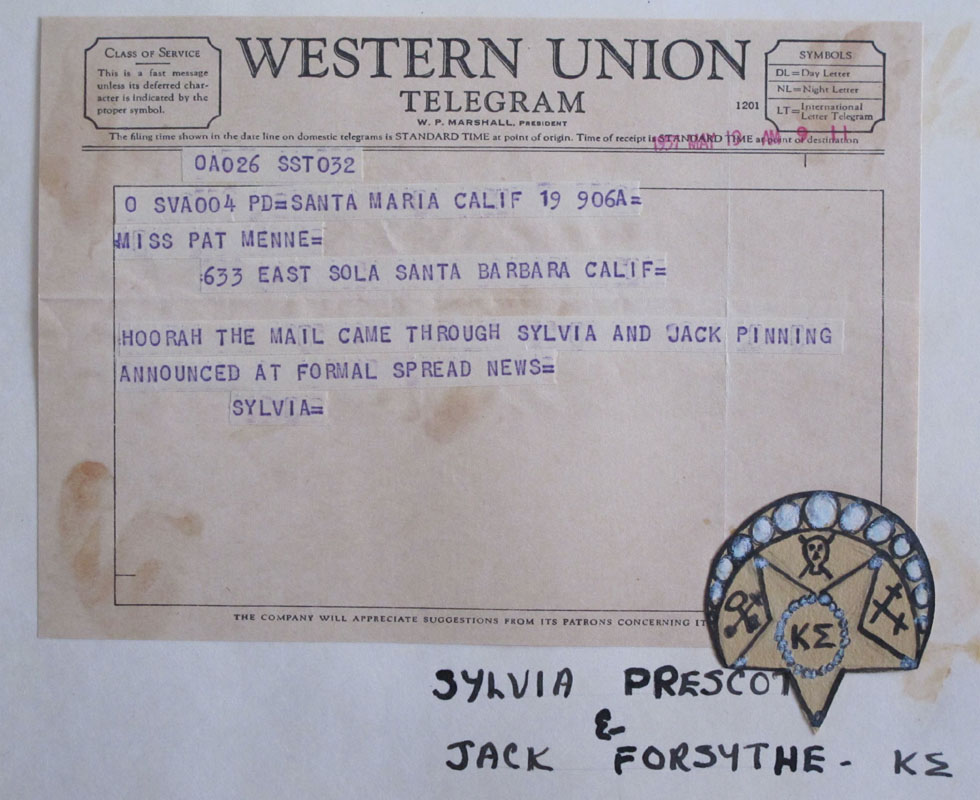 CLASS OF SERVICE
This is a fast message
unless its deferred char-
acter is indicated by the
proper symbol.
WESTERN UNION
TELEGRAM
W. P. MARSHALL, PRESIDENT
1201
SYMBOLS
DL=Day Letter
NL=Night Letter
LT=International
Letter Telegram
The filing time shown in the date line on domestic telegrams is STANDARD TIME at point of origin. Time of receipt is STANDARD TIME at point of destination
MAY 19 AM 9 11
OA026 SST032
O SVA004 PD=SANTA MARIA CALIF 19 906A=
MISS PAT MENNE=
:633 EAST SOLA SANTA BARBARA CALIF=
HOORAH THE MAIL CAME THROUGH SYLVIA AND JACK PINNING
ANNOUNCED AT FORMAL SPREAD NEWS=
SYLVIA=
THE COMPANY WILL APPRECIATE SUGGESTIONS FROM ITS PATRONS CONCERNING
ΚΣ
SYLVIA PRESCOT
&
JACK FORSYTHE - ΚΣ